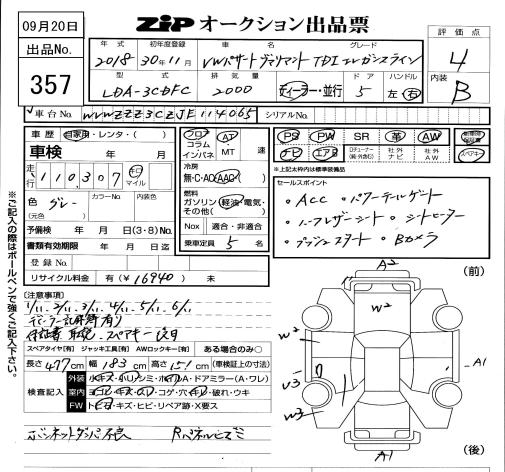 09月20日
出品No.
357
ZIP オークション出品票
評価点
4
内装
B
年式 初年度登録 車名 グレード
2018 30年11月 VWパサートヴァリアント TDI エレガンスライン
型式 排気量 ドア ハンドル
LDA-3CDFC 2000 ディーラー・並行 5 左 右
車台No. WVWZZZ3CZJE114065 シリアルNo.
車歴 自家用・レンタ・( )
車検 年 月
走行 110,307 キロ マイル
色 グレー カラーNo. 内装色
(元色)
予備検 年 月 日(3・8)No.
書類有効期限 年 月 日迄
登録No.
リサイクル料金 有(¥16940) 未
フロア コラム インパネ
AT ・ MT 速
冷房
無・C・AC・AAC
燃料
ガソリン・軽油・電気・その他( )
Nox 適合・非適合
乗車定員 5 名
PS PW SR 革 AW
ナビ エアB
社外ナビ 社外AW
スペアキー
※上記太枠内は標準装備品
セールスポイント
・ACC ・パワーテールゲート
・ハーフレザーシート ・シートヒーター
・プッシュスタート ・Bカメラ
※ご記入の際はボールペンで強くご記入下さい。
[注意事項]
1/11 2/11 3/11 4/11 5/11 6/11
ディーラー記録簿有り
スペアキー 後日
スペアタイヤ[有] ジャッキ工具[有] AWロックキー[有] ある場合のみ○
長さ 477cm 幅 183cm 高さ 151cm (車検証上の寸法)
検査記入
外装 小キズ・小ハシミ・ ・ドアミラー(A・ワレ)
室内 ヨゴレ・キズ・スレ・コゲ・穴・ ・破れ・ウキ
FW トビ石・キズ・ヒビ・リペア跡・X要ス
ボンネットダンパ不良
(前)
A2
W2
W2
U3
W3
A1
A1
(後)